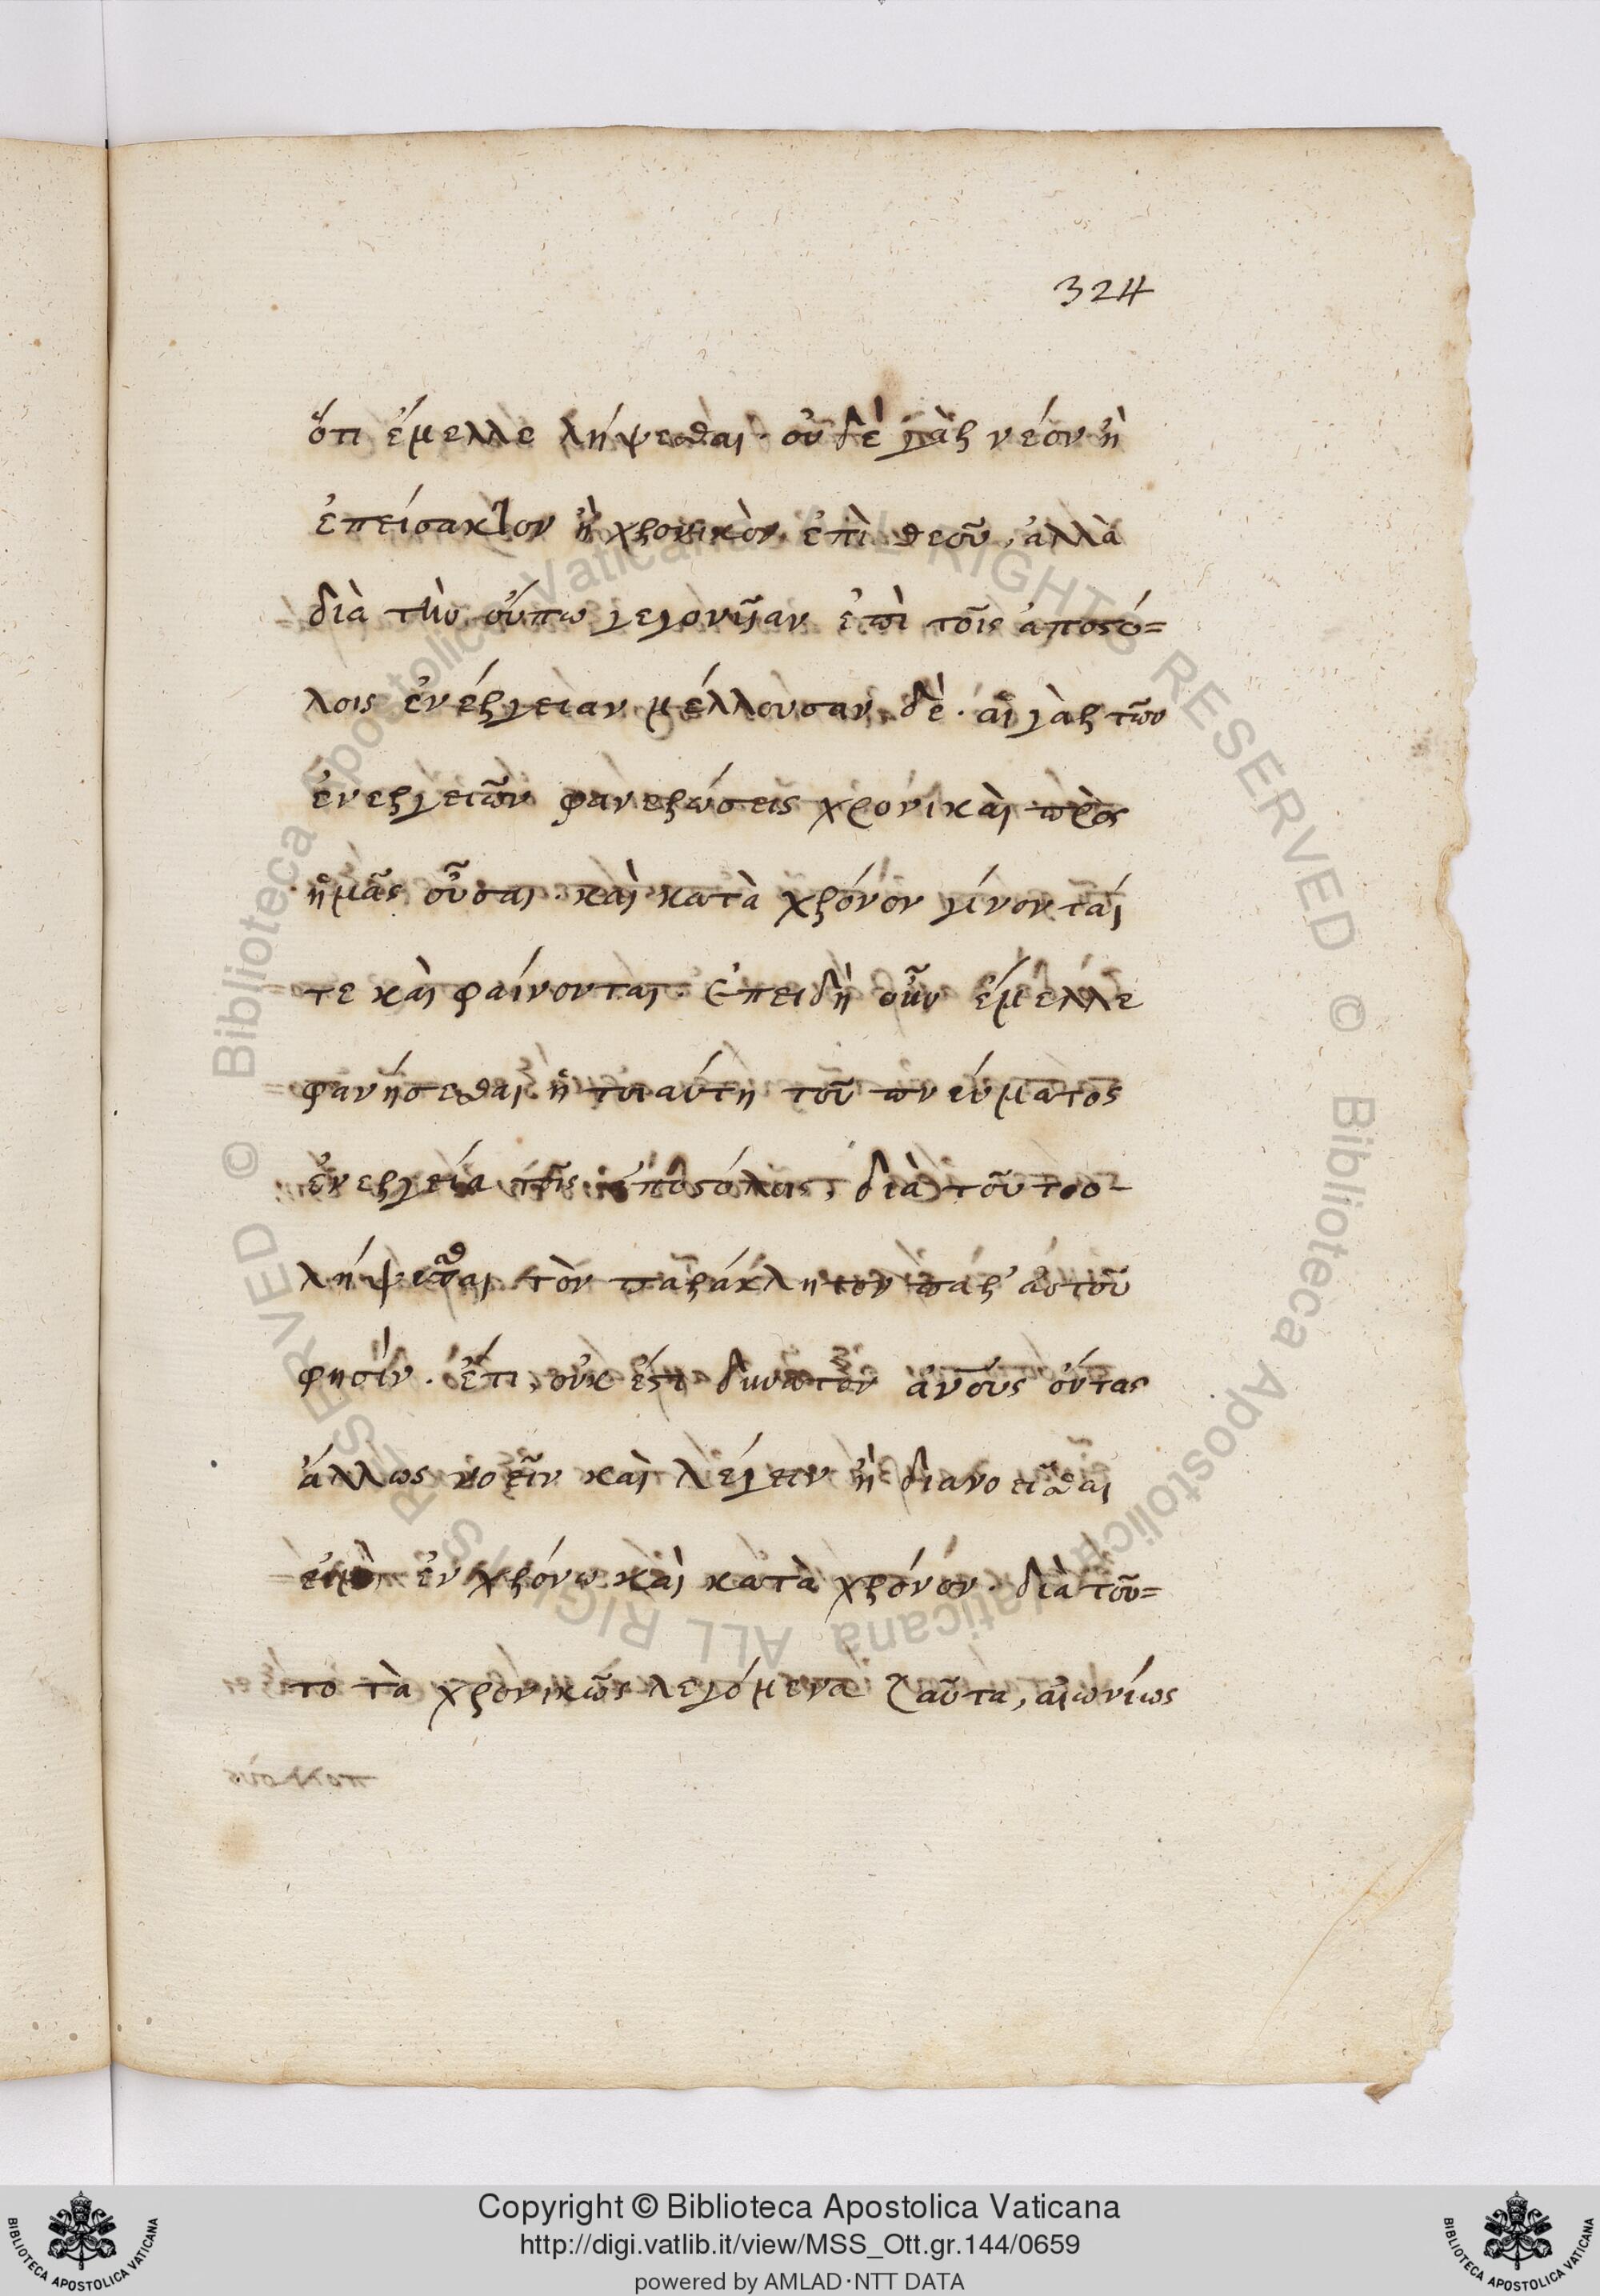 324
ὅτι ἔμελλε λήψεσθαι. οὐδὲ γὰρ νέον ἢ
ἐπείσακτον ἢ χρονικὸν ἐπὶ θεοῦ, ἀλλὰ
διὰ τὴν οὔπω γεγονῦιαν ἐπὶ τοῖς ἀποστό=
λοις ἐνέργειαν μέλλουσαν δὲ. αἱ γὰρ τῶν
ἐνεργειῶν φανερώσεις χρονικαὶ πρὸς
ἡμᾶς οὖσαι. καὶ κατὰ χρόνον γίνονταί
τε καὶ φαίνονται. Ἐπειδὴ οὖν ἔμελλε
φανήσεσθαι ἡ τοιαύτη τοῦ πνεύματος
ἐνεργεία τοῖς ἀποστόλοις, διὰ τοῦτο
λήψεσθαι τὸν παράκλητον παρ' αὐτοῦ
φησίν. ἔτι, οὐκ ἔστι δυνατὸν ἀνους ὄντας
ἄλλως νοεῖν καὶ λέγειν ἢ διανοεῖσθαι
εἰμὴ ἐν χρόνω καὶ κατὰ χρόνον. διὰ τοῦ=
το τὰ χρονικῶς λεγόμενα ταῦτα, αἰωνίως
Copyright © Biblioteca Apostolica Vaticana
http://digi.vatlib.it/view/MSS_Ott.gr.144/0659
powered by AMLAD·NTT DATA
BIBLIOTECA APOSTOLICA VATICANA
BIBLIOTECA APOSTOLICA VATICANA
© Biblioteca Apostolica Vaticana ALL RIGHTS RESERVED
© Biblioteca Apostolica Vaticana ALL RIGHTS RESERVED